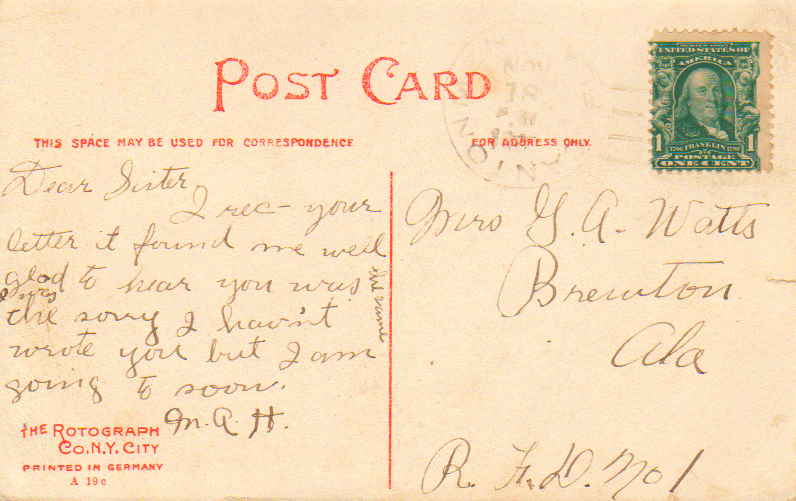 POST CARD
THIS SPACE MAY BE USED FOR CORRESPONDENCE
FOR ADDRESS ONLY.
NOV
18
UNITED STATES OF
AMERICA
1
1
FRANKLIN
POSTAGE
ONE CENT
Dear Sister,
I rec- your
letter it found me well
glad to hear you was
the same
the sorry I havn't
wrote you but I am
going to soon.
M. A. H.
Mrs G. A. Watts
Brewton
Ala
R. F. D. No 1
THE ROTOGRAPH
CO., N.Y. CITY
PRINTED IN GERMANY
A 19c